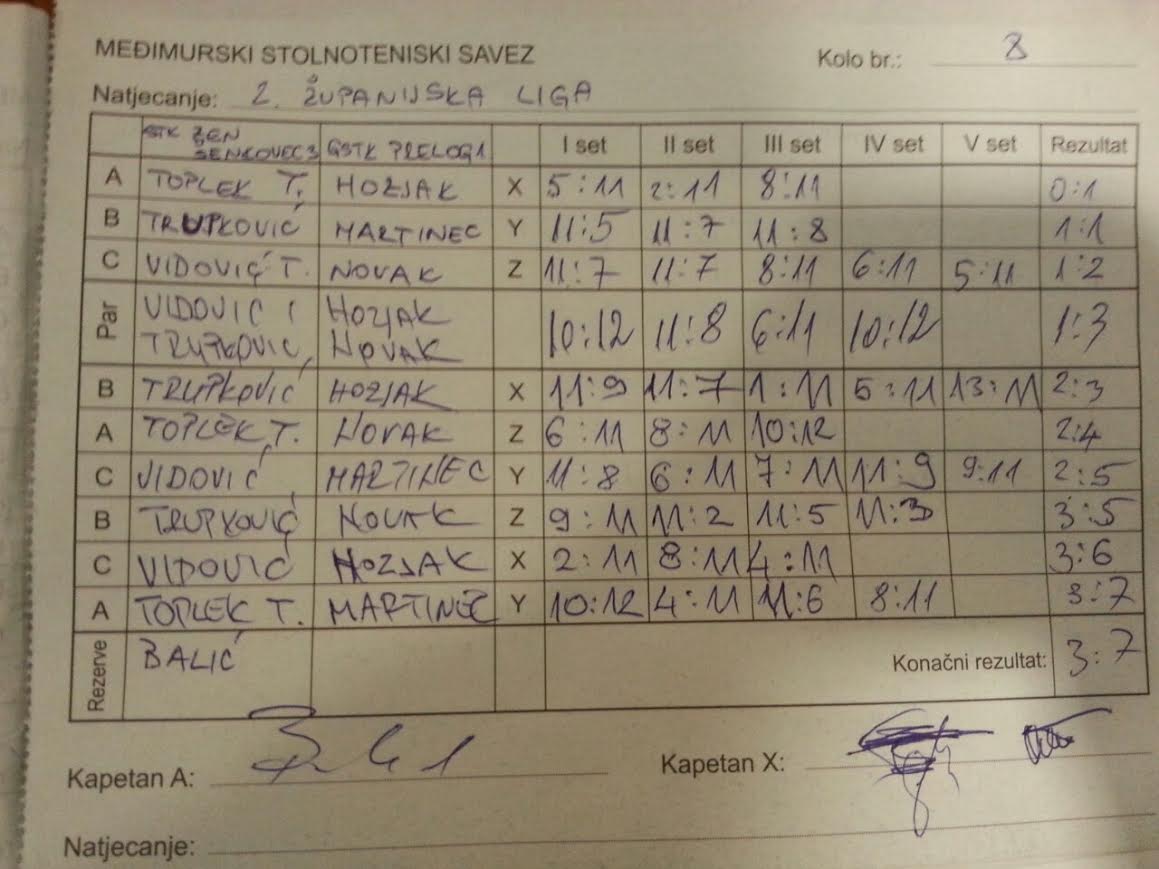 MEĐIMURSKI STOLNOTENISKI SAVEZ
Kolo br.: 8
Natjecanje: 2. ŽUPANIJSKA LIGA
STK ZEN SENKOVEC 3 GSTK PRELOG 1 I set II set III set IV set V set Rezultat
A TOPLEK T. HOZJAK X 5:11 2:11 8:11 0:1
B TRUPKOVIĆ MARTINEC Y 11:5 11:7 11:8 1:1
C VIDOVIĆ T. NOVAK Z 11:7 11:7 8:11 6:11 5:11 1:2
Par VIDOVIĆ I HOZJAK
TRUPKOVIĆ NOVAK 10:12 11:8 6:11 10:12 1:3
B TRUPKOVIĆ HOZJAK X 11:9 11:7 1:11 5:11 13:11 2:3
A TOPLEK T. NOVAK Z 6:11 8:11 10:12 2:4
C VIDOVIĆ MARTINEC Y 11:8 6:11 7:11 11:9 9:11 2:5
B TRUPKOVIĆ NOVAK Z 9:11 11:2 11:5 11:3 3:5
C VIDOVIĆ HOZJAK X 2:11 8:11 4:11 3:6
A TOPLEK T. MARTINEC Y 10:12 4:11 11:6 8:11 3:7
Rezerve BALIĆ Konačni rezultat: 3:7
Kapetan A:
Kapetan X:
Natjecanje: